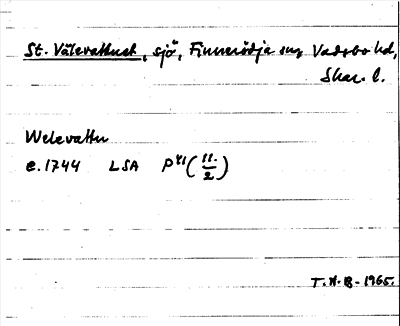 St. Välevattnet, sjö, Finnerödja sn, Vadsbo hd,
Skar. l.
Welevattn
e. 1744 LSA P41 (11/2)
T.H.B. - 1965.